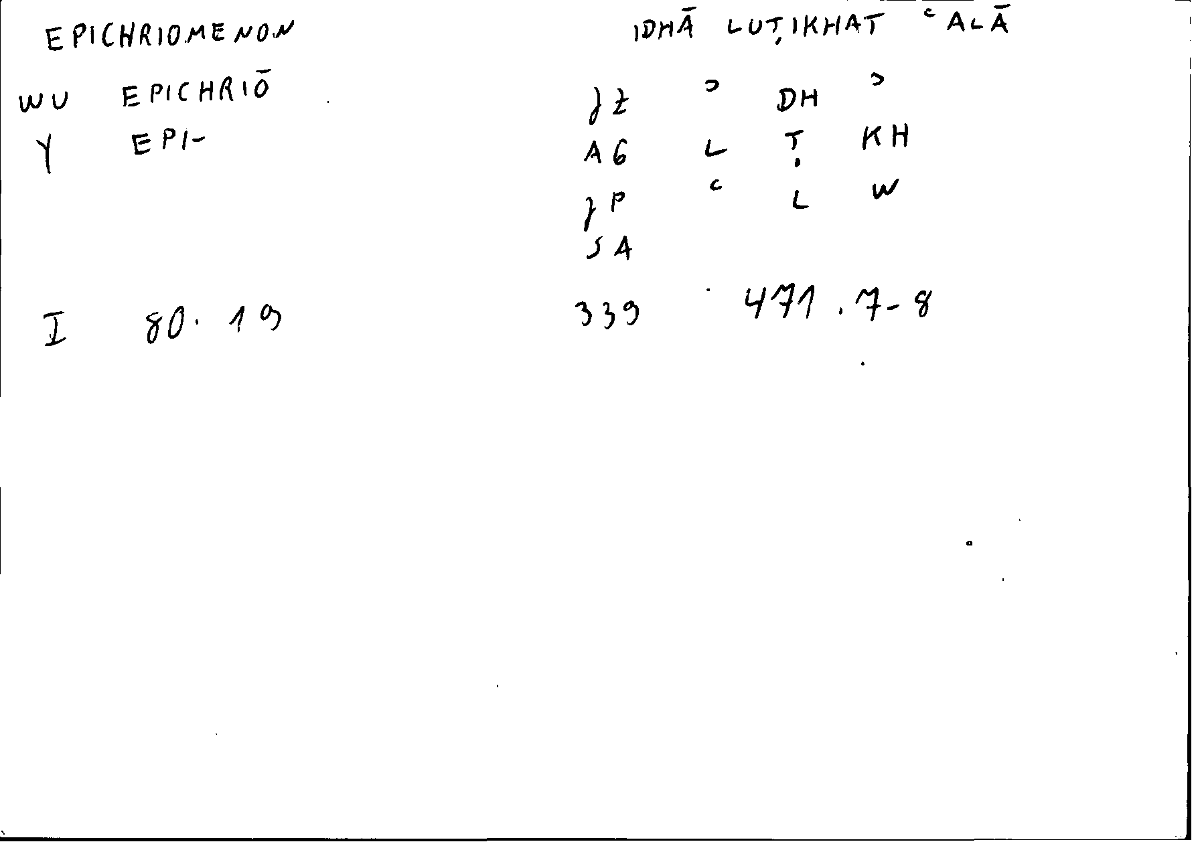 EPICHRIOMENON IDHĀ LUṬIKHAT ʿALĀ
WU EPICHRIŌ
Y EPI-
JZ ʾ DH ʾ
AG L Ṭ KH
JP ʿ L W
SA
I 80.19 339 471.7-8